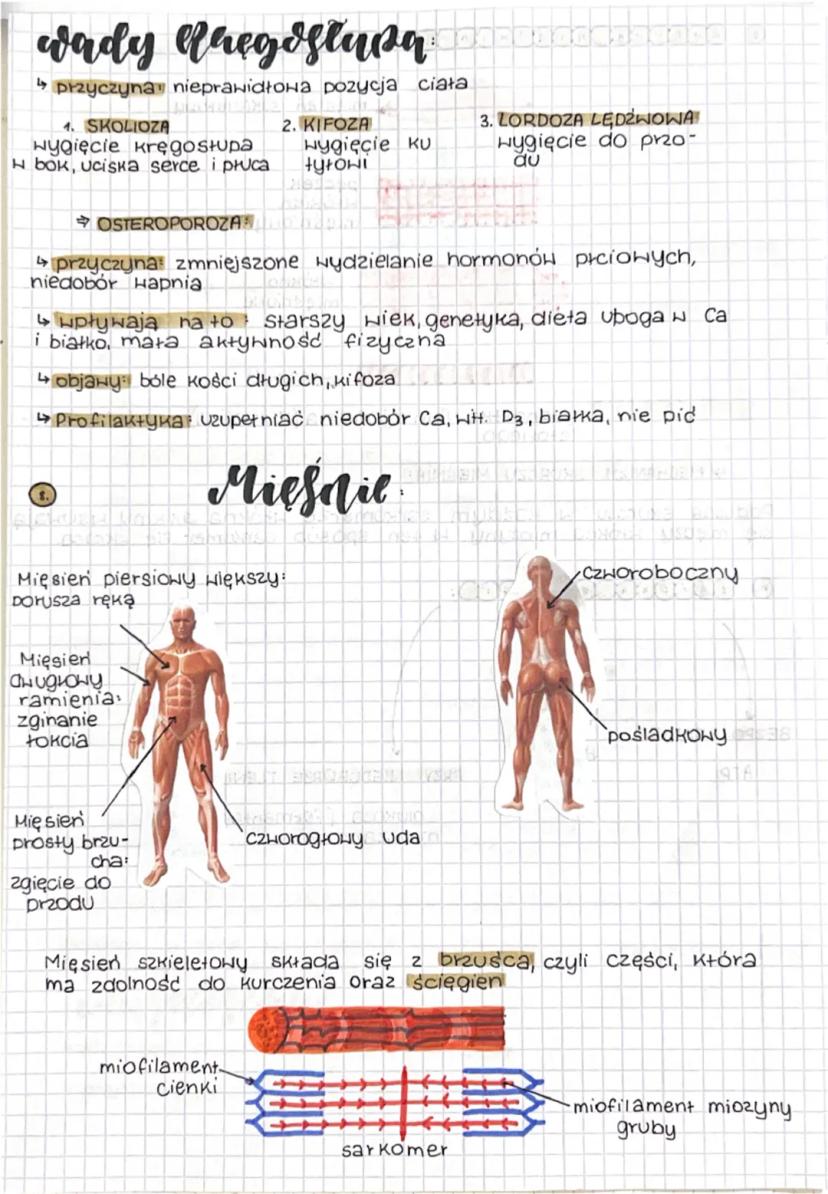 wady kręgosłupa:
↳ przyczyna: nieprawidłowa pozycja ciała
1. SKOLIOZA
wygięcie kręgosłupa
w bok, uciska serce i płuca
2. KIFOZA
wygięcie ku
tyłowi
3. LORDOZA LĘDŹWOWA
wygięcie do przo-
du
⇒ OSTEROPOROZA:
↳ przyczyna: zmniejszone wydzielanie hormonów płciowych,
niedobór wapnia
↳ wpływają na to: starszy wiek, genetyka, dieta uboga w Ca
i białko, mała aktywność fizyczna
↳ objawy: bóle kości długich, kifoza
↳ Profilaktyka: uzupełniać niedobór Ca, wit. D3, białka, nie pić
8.
Mięśnie:
Mięsień piersiowy większy:
porusza ręką
Mięsień
dwugłowy
ramienia:
zginanie
łokcia
Mięsień
prosty brzu-
cha:
zgięcie do
przodu
czworogłowy uda
czworoboczny
pośladkowy
Mięsień szkieletowy składa się z brzuśca, czyli części, która
ma zdolność do kurczenia oraz ścięgien
miofilament
cienki
miofilament miozyny
gruby
sarkomer